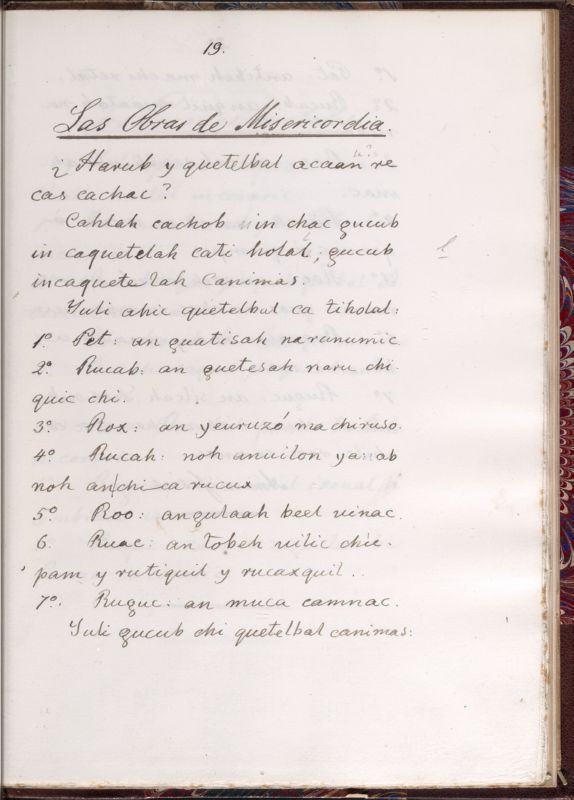 19.
Las Obras de Misericordia.
¿ Harub y quetelbal acaan re
cas cachac?
Cahlah cachob in chac ꜫucub
in caquetelah cati holal, ꜫucub
incaquetelah canimas.
Yuli ahic quetelbal ca tiholal:
1º Pet: an ꜫuatisah naranumic
2º Rucab: an ꜫuetesah naru chi-
quic chi.
3º Rox: an yeuruzó ma chiruso.
4º Rucah: noh anuilon ya: ab
noh an chi ca rucux
5º Roo: anꜫulaah beel uinac.
6. Ruac: an tobeh uilic chic-
pam y rutiquil y rucaxquil..
7º. Ruꜫuc: an muca camnac.
Yuli ꜫucub chi quetelbal canimas: